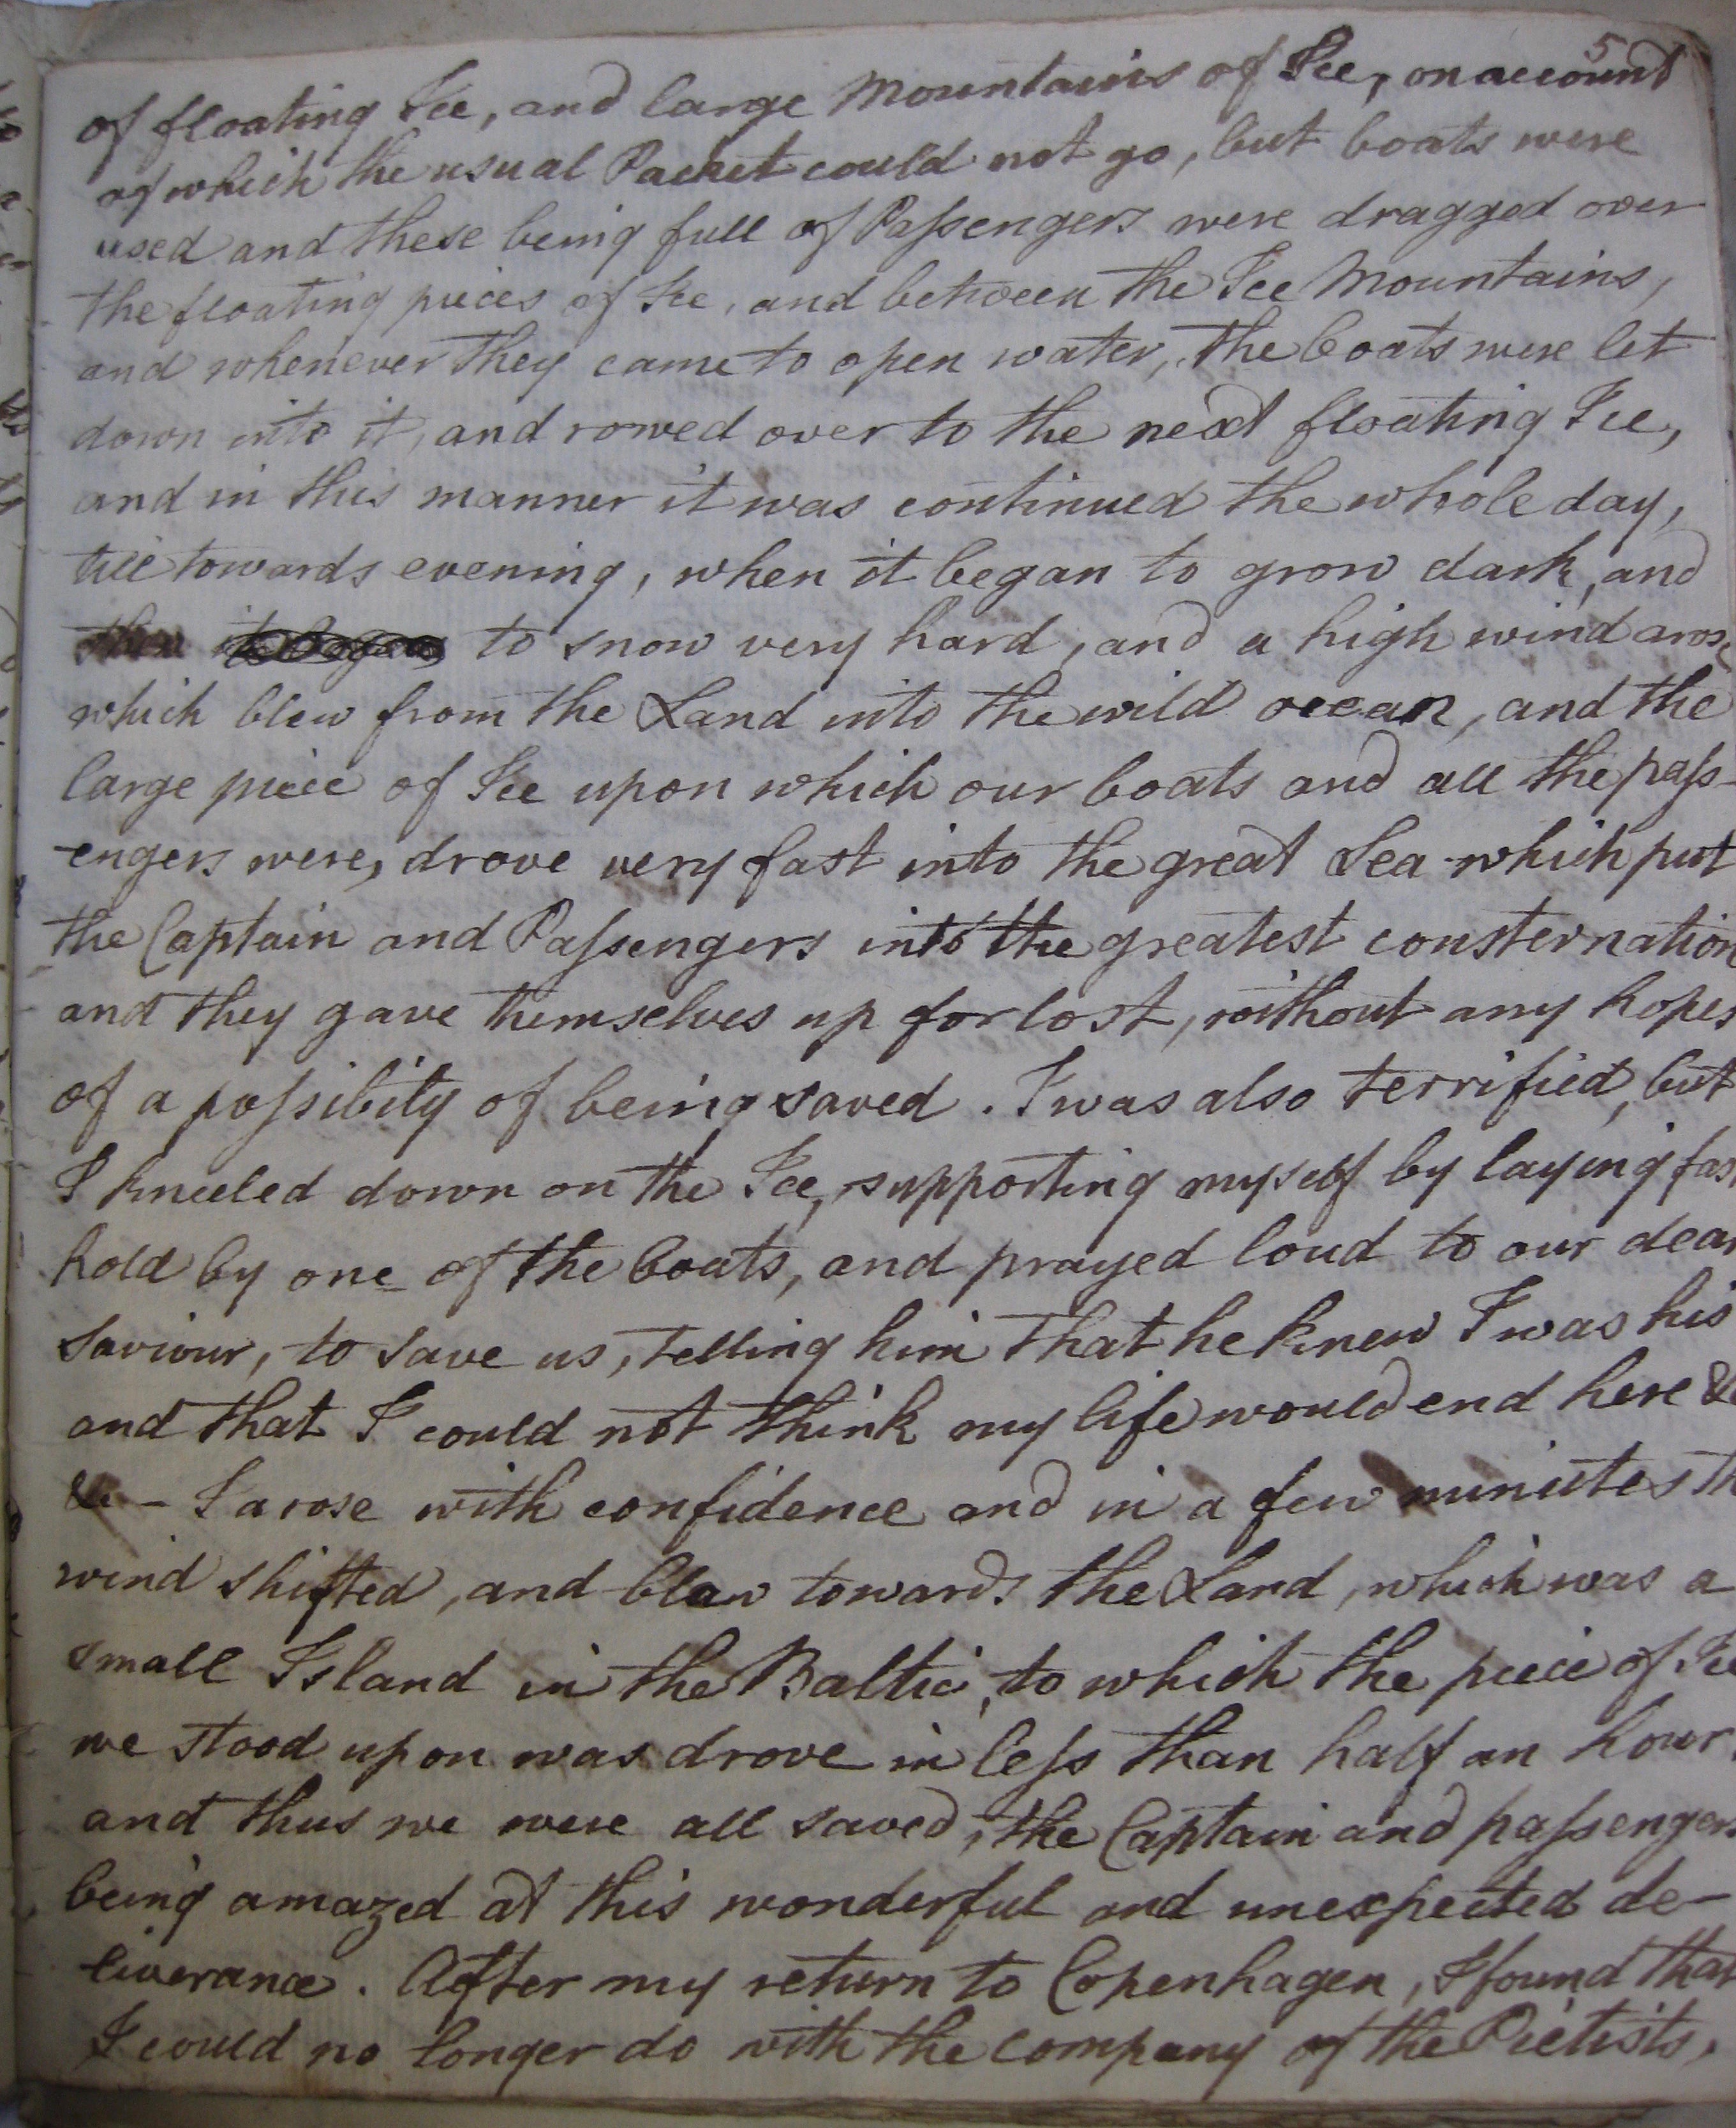 5
of floating Ice, and large Mountains of Ice, on account
of which the usual Packet could not go, but boats were
used and these being full of Paſsengers were dragged over
the floating pieces of Ice, and between the Ice Mountains,
and whenever they came to open water, the boats were let
down into it, and rowed over to the next floating Ice,
and in this manner it was continued the whole day,
till towards evening, when it began to grow dark, and
to snow very hard, and a high wind arose
which blew from the Land into the wild ocean, and the
large piece of Ice upon which our boats and all the paſs-
-engers were, drove very fast into the great Sea which put
the Captain and Paſsengers into the greatest consternation
and they gave themselves up for lost, without any hopes
of a poſsibility of being saved. I was also terrified, but
I kneeled down on the Ice, supporting myself by laying fast
hold by one of the boats, and prayed loud to our dear
Saviour, to save us, telling him that he knew I was his
and that I could not think my life would end here &c
&c – I arose with confidence and in a few minutes the
wind shifted, and blew towards the Land, which was a
small Island in the Baltic, to which the piece of Ice
we stood upon was drove in leſs than half an hour
and thus we were all saved, the Captain and paſsengers
being amazed at this wonderful and unexpected de-
liverance. After my return to Copenhagen, I found that
I could no longer do with the company of the Pietists,